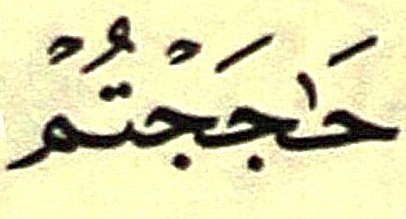 حَٰجَجْتُمْ